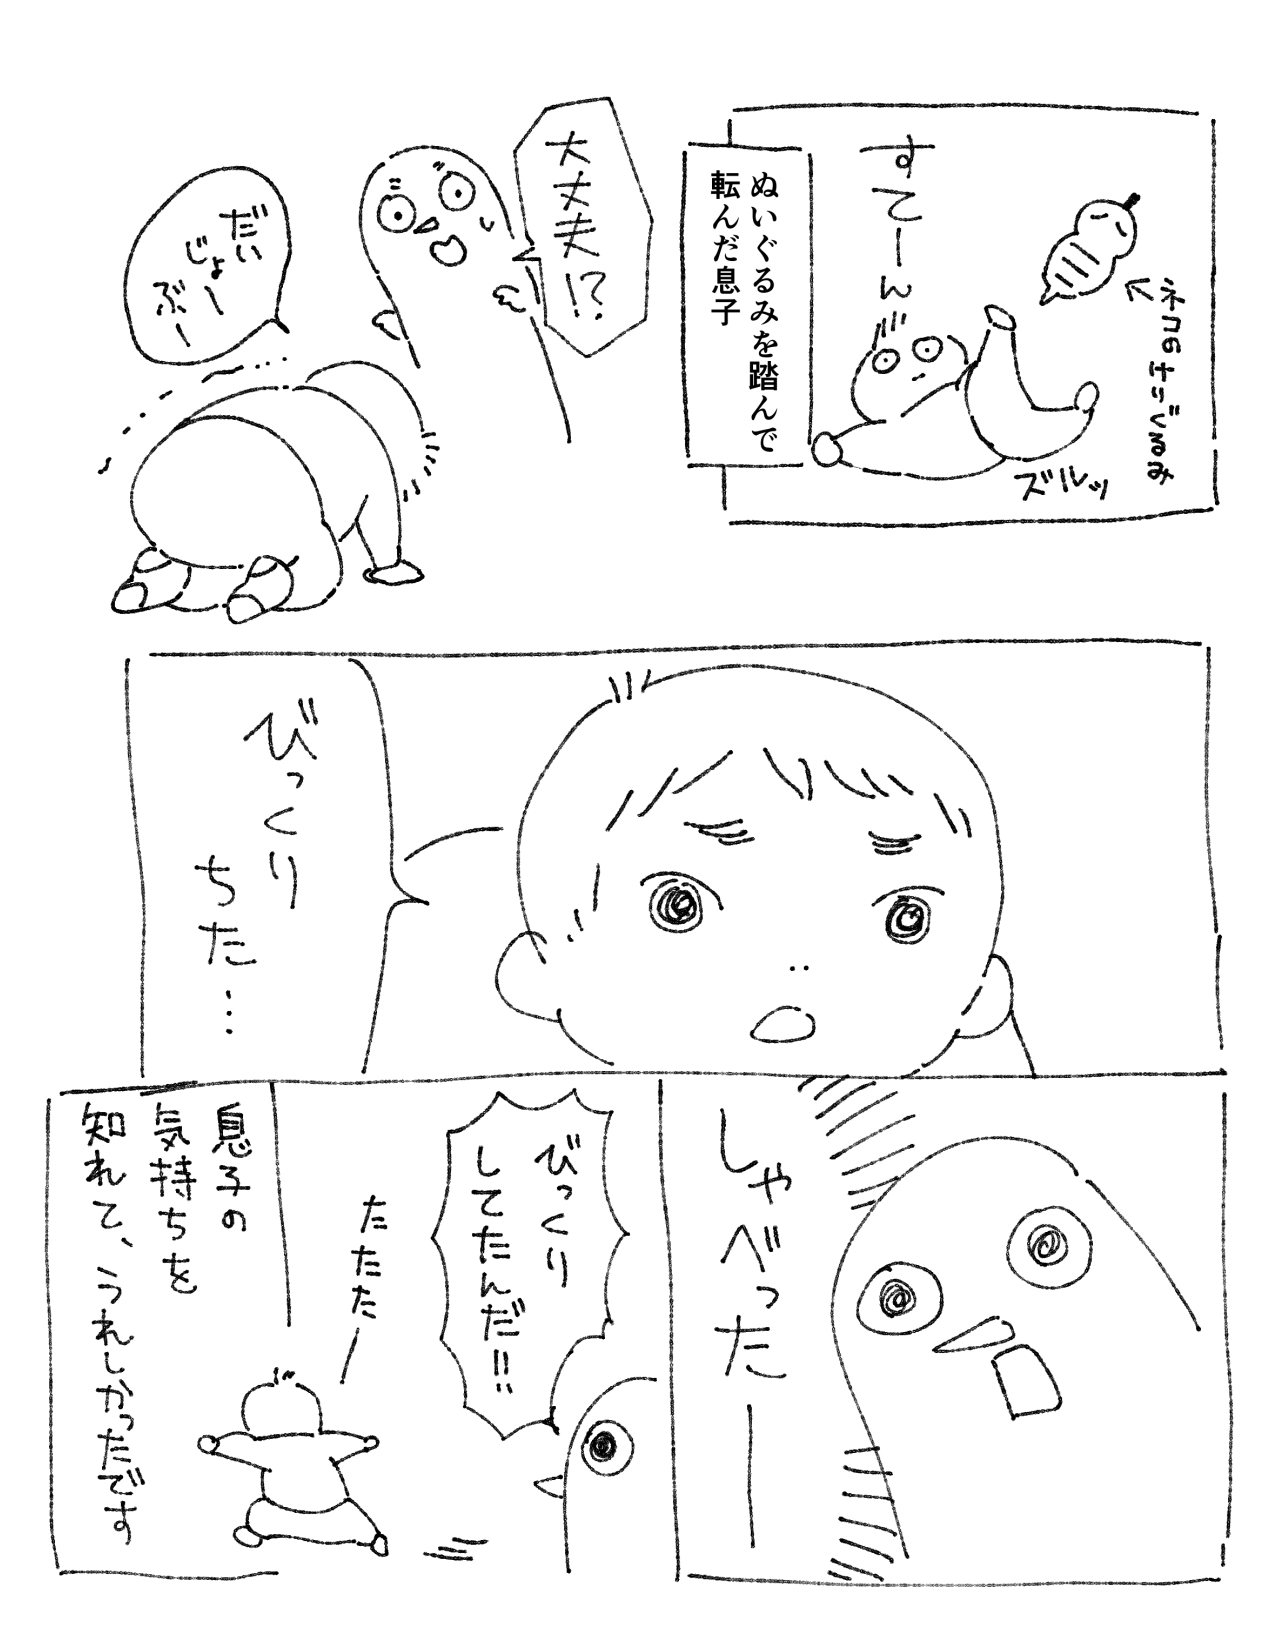 すてーん
ネコのけりぐるみ
ズルッ
ぬいぐるみを踏んで
転んだ息子
大丈夫!?
だい
じょー
ぶー
びっくり
ちた…
しゃべったー
びっくり
してたんだ!!
たたたー
息子の
気持ちを
知れて、うれしかったです